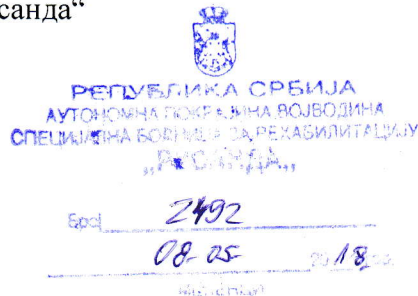 санда“
РЕПУБЛИКА СРБИЈА
АУТОНОМНА ПОКРАЈИНА ВОЈВОДИНА
СПЕЦИЈАЛНА БОЛНИЦА ЗА РЕХАБИЛИТАЦИЈУ
„РУСАНДА„
Број 2492
08-05- 2018 год.